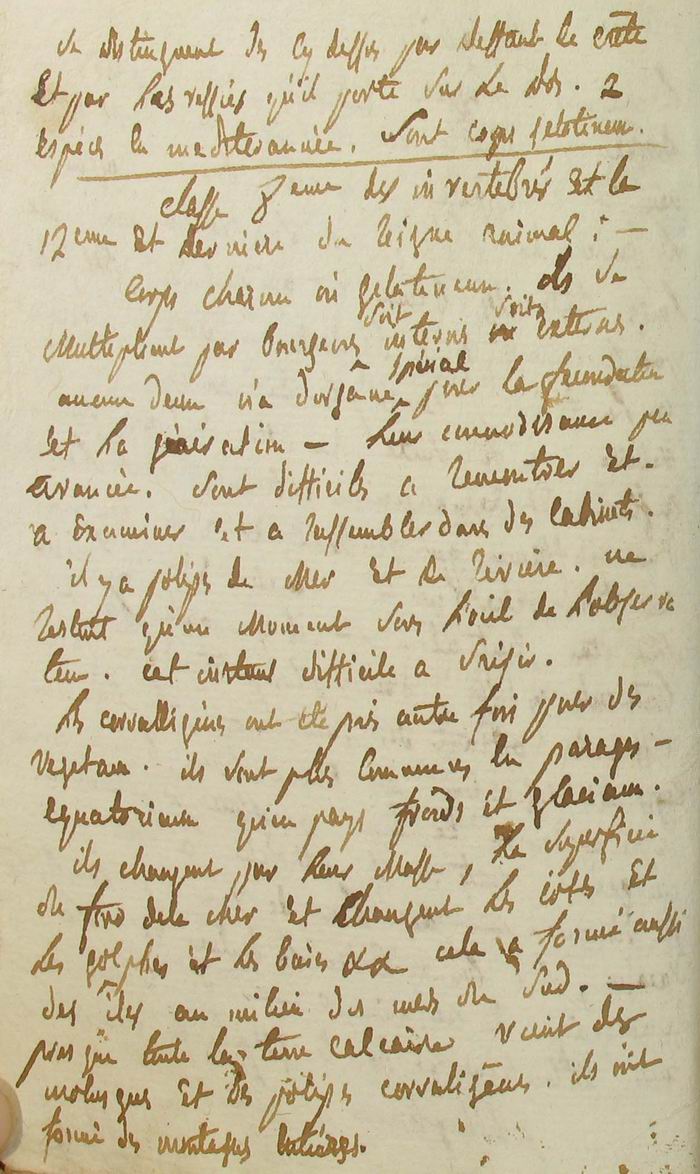 se distinguent des cy dessus par deffaut de crête
Et par les qu'il porte sur Le dos. 2
espèces en mediteranée. Sont corps gelatineux.
classe 8eme des invertebrés Et la
12eme Et derniere du Reigne animal. —
Corps charnu ou gelatineux. ils se
Multiplient par bourgeons soit internes ou soit externes.
aucun deux n'a d'organe spécial pour la fecondation
Et la géneration — Leur peu
avancée. Sont difficiles a rencontrer Et
a Examiner Et a rassembler dans des Cabinets.
il y a polipes de Mer Et de Riviere. ne
Restent qu'un Moment sous L'œil de L'observa
teur. cet instant difficile a saisir.
Les coralligènes ont été pris autre fois pour des
Vegetaux. ils sont plus Communs en parages
Equatoriaux qu'en pays froids Et glaciaux.
ils changent par Leur Masse, La superficie
du fond de la Mer Et changent Les côtes Et
Les golphes Et Les baies &a cela a formé aussi
des îles au milieu des mers du Sud. —
presque toute la terre calcaire vient des
molusques Et des polipes coralligènes. ils ont
formé des montagnes Entières.